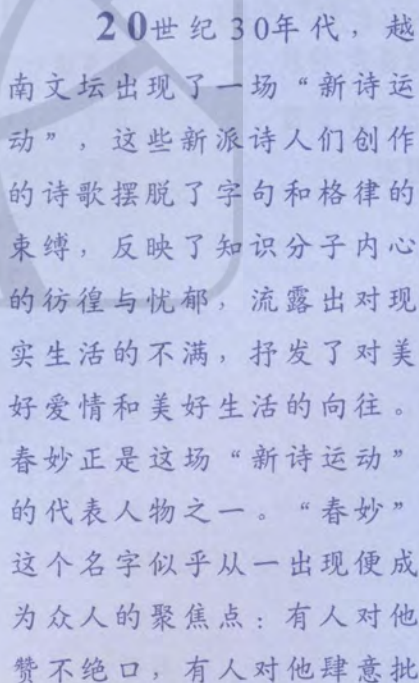 20世纪30年代，越
南文坛出现了一场“新诗运
动”，这些新派诗人们创作
的诗歌摆脱了字句和格律的
束缚，反映了知识分子内心
的彷徨与忧郁，流露出对现
实生活的不满，抒发了对美
好爱情和美好生活的向往。
春妙正是这场“新诗运动”
的代表人物之一。“春妙”
这个名字似乎从一出现便成
为众人的聚焦点：有人对他
赞不绝口，有人对他肆意批